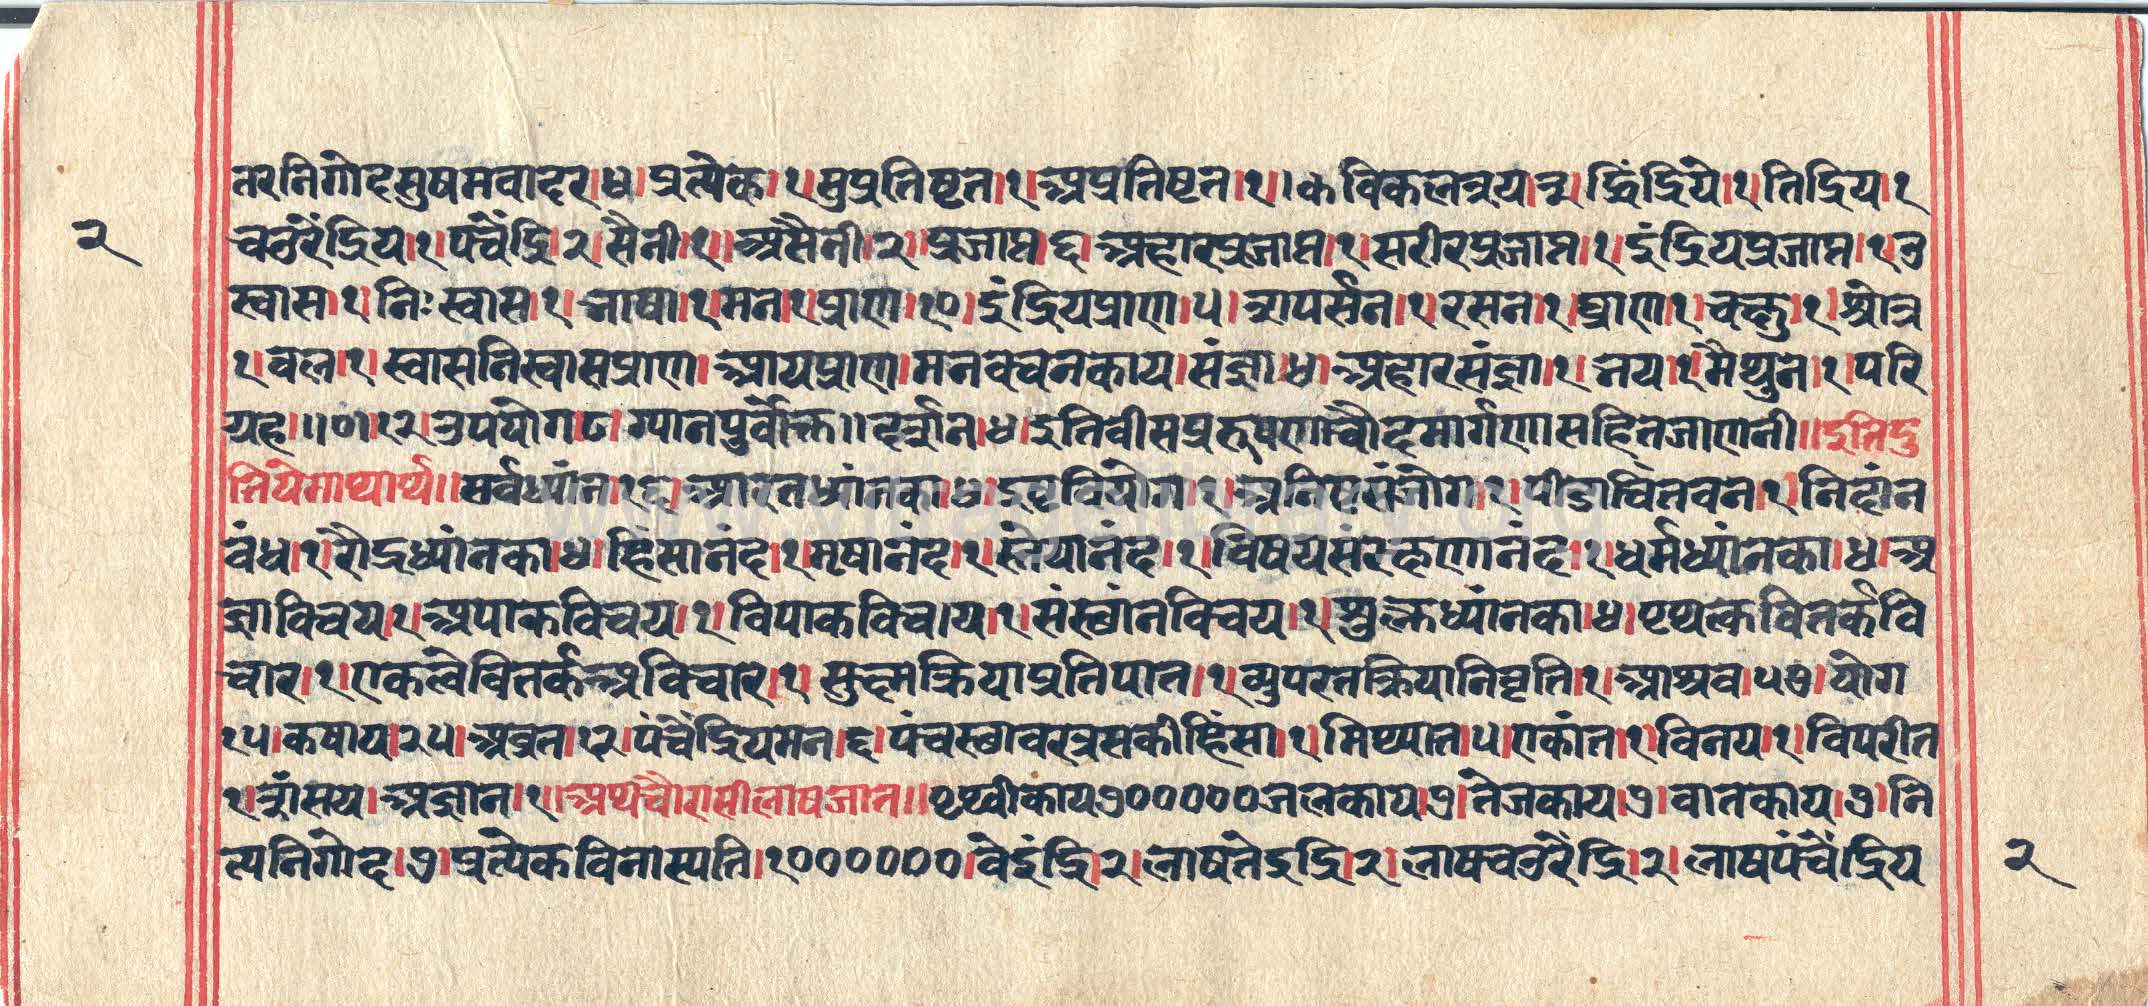 तरनिगोदसुषमवादर।४। प्रत्येक। १। सुप्रतिष्टत। १। अप्रतिष्टत। १। विकलत्रय। द्विंद्रिये। १। तिद्रिय। १
२
चउरेंद्रिय। १। पंचेंद्रि। २। सैनी। १। असैनी। २। प्रजाप्त। ६। अहारप्रजाप्त। १। सरीरप्रजाप्त। १। इंद्रियप्रजाप्त। १। उ
स्वास। १। निःस्वास। १। भाषा। १। मन। १। प्राण। १०। इंद्रियप्राण। ५। १। रसन। १। घ्राण। १। चक्षु। १। श्रोत्र
१। वल। १। स्वासनिस्वासप्राण। आयप्राण। मनवचनकाय। संज्ञा। ४। अहारसंज्ञा। १। भय। १। मैथुन। १। परि
ग्रह। १२। उपयोग। ८। ग्यानपुर्वोक्त॥ दर्शन। ४। इतिवीसप्ररूपणाचौदमार्गणासहितजाणनी॥
सर्वध्यांन। १६। आरतध्यांनका। ४। इष्टवियोग। १। अनिष्टसंजोग। १। पीडाचिंतवन। १। निदांन
वंध। १। रौद्रध्यांनका। ४। हिंसानंद। १। मृषानंद। १। स्तेयानंद। १। विषयसंरक्षणानंद। १। धर्मध्यांनका। ४। अ
ज्ञाविचय। १। अपाकविचय। १। विपाकविचाय। १। संस्थांनविचय। १। शुक्लध्यांनका। ४। पृथत्कवितर्कवि
चार। १। एकत्वेवितर्कअविचार। १। सुक्ष्मक्रियाप्रतिपात। १। व्युपरतक्रियानिवृति। १। आश्रव। ५७। योग
१५। कषाय। २५। अव्रत। १२। पंचेंद्रियमन। ६। पंचस्थावरत्रसकीहिंसा। १। मिथ्यात। ५। एकांत। १। विनय। १। विपरीत
१। शंसय। अज्ञान। १। अथचौरासीलाषजात॥ पृथ्वीकाय७०००००० जलकाय। ७। तेजकाय। ७। वातकाय। ७। नि
त्यनिगोद। ७। प्रत्येकविनास्पति। १००००००। वेइंद्रि। २। लाषतेइद्रि। २। लाषचउरेंद्रि। २। लाषपंचेंद्रिय
२